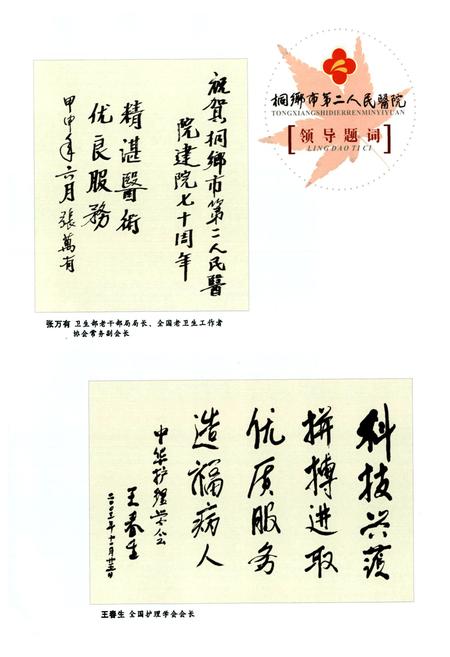 桐鄉市第二人民醫院
TONGXIANGSHIDIERRENMINYIYUAN
[领导题词]
LINGDAOTICI
祝贺桐鄉市第二人民醫
院建院七十周年
精湛醫術
优良服務
甲申年六月張萬有
张万有 卫生部老干部局局长、全国老卫生工作者
协会常务副会长
科技兴護
拼搏进取
优质服务
造福病人
中华护理学会
王春生
二〇〇三年十二月廿三日
王春生 全国护理学会会长